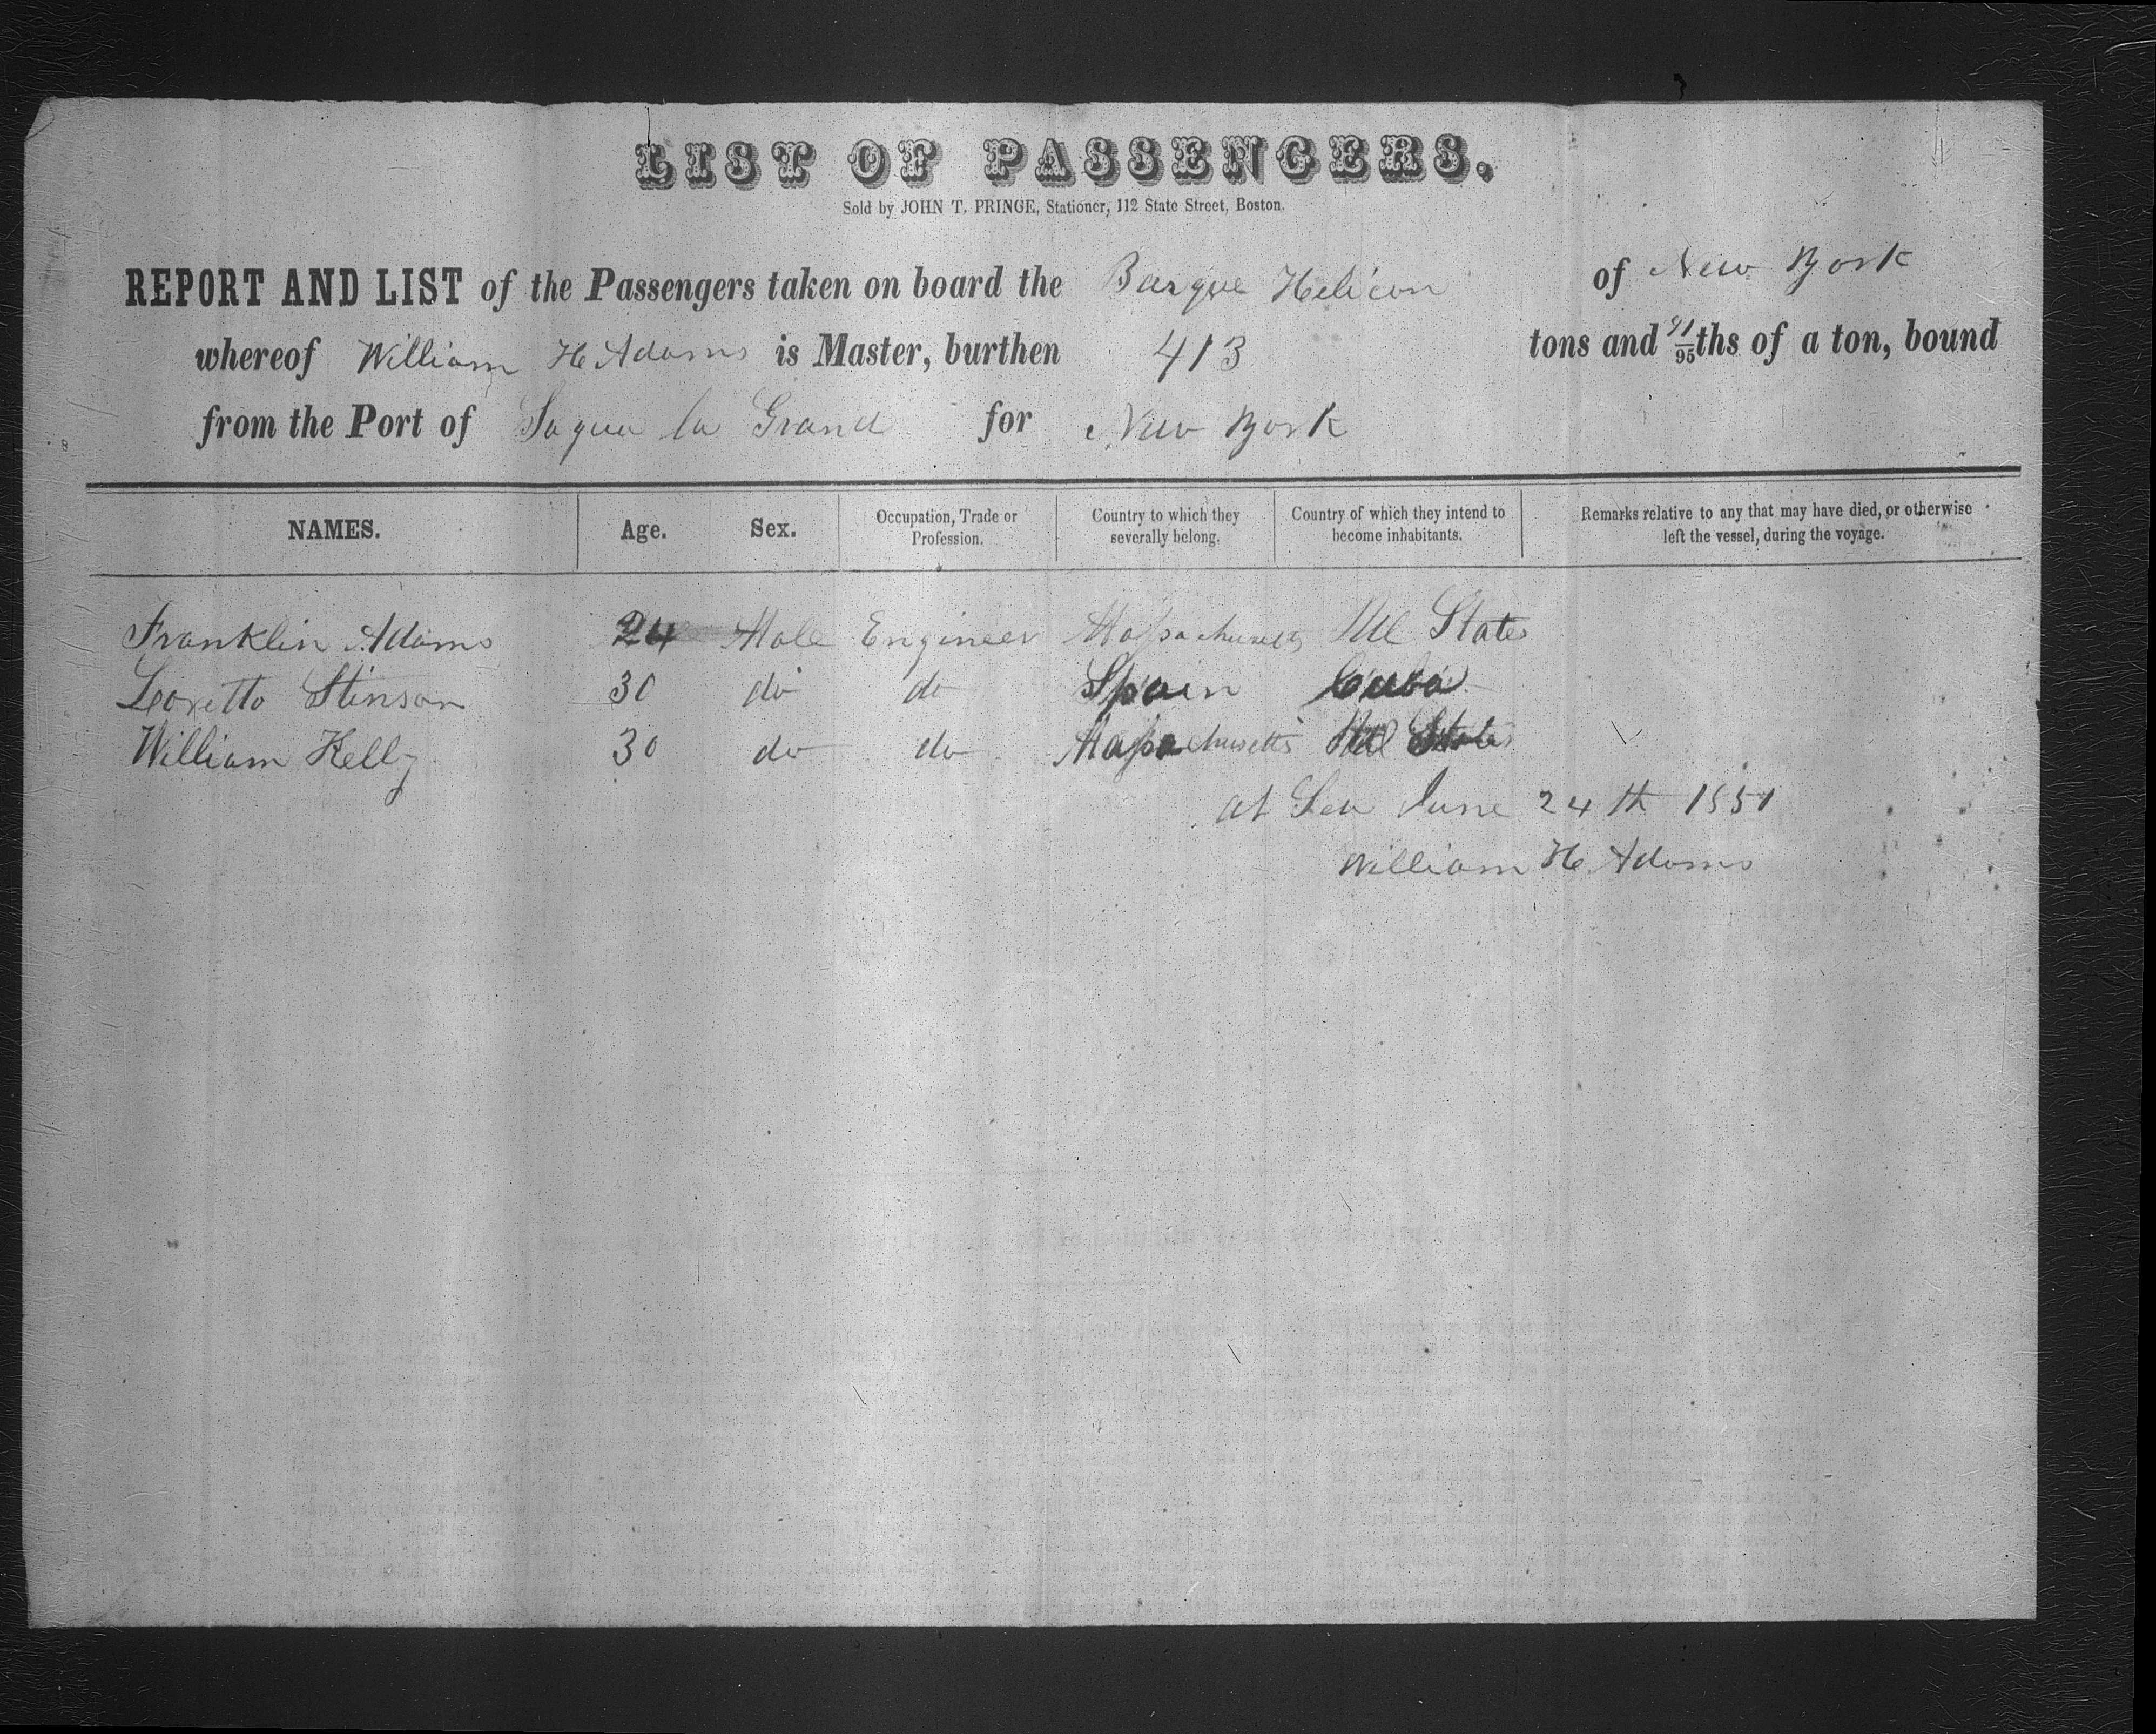 LIST OF PASSENGERS.
Sold by JOHN T. PRINCE, Stationer, 112 State Street, Boston.
REPORT AND LIST of the Passengers taken on board the Barque Helicon of New York
whereof William H Adams is Master, burthen 413 tons and 91/95ths of a ton, bound
from the Port of Sagua la Grand for New York
NAMES. Age. Sex. Occupation, Trade or Profession. Country to which they severally belong. Country of which they intend to become inhabitants. Remarks relative to any that may have died, or otherwise left the vessel, during the voyage.
Franklin Adams 24 Male Engineer Massachusetts States
Loretto Stinson 30 do do Spain Cuba
William Kelly 30 do do Massachusetts States
at Sea June 24th 1851
William H Adams